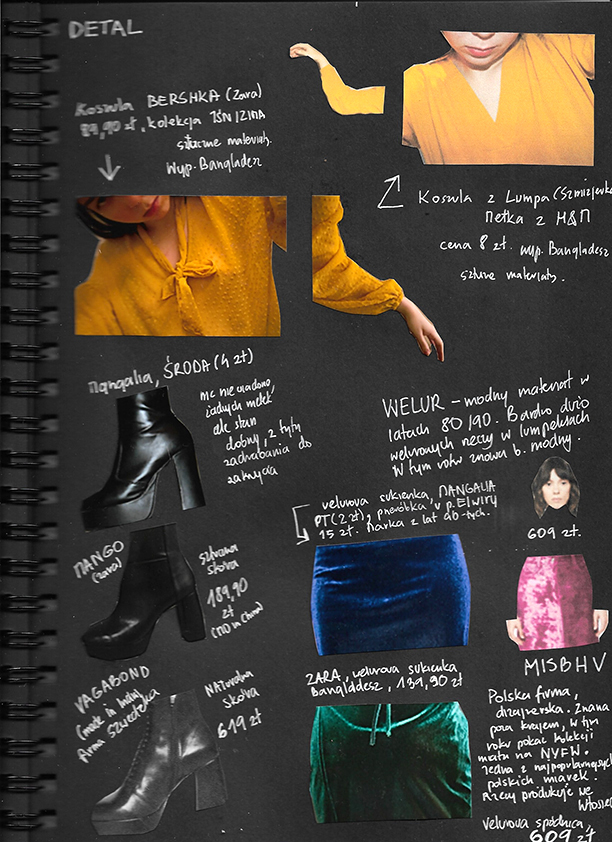 DETAL
Koszula BERSHKA (Zara)
89,90 zł, kolekcja JŚN/ZIMA
sztuczne materiały.
Wyp. Bangladesz
Koszula z Lumpa
Metka z H&M
cena 8 zł. wyp. Bangladesz
sztuczne materiały.
Mangalia, ŚRODA (4 zł)
nic nie wiadomo,
żadnych metek
ale stan
dobry, z tyłu
zadrapania do
zakrycia
WELUR – modny materiał w
latach 80/90. Bardzo dużo
welurowych rzeczy w lumpeksach
W tym roku znowu b. modny.
welurowa sukienka, MANGALIA
PT (2 zł), przeróbka u p. Elwiry
15 zł. Marka z lat 90-tych.
609 zł.
MANGO
(Zara)
sztuczna
skóra
189,90
zł
(MD in China)
ZARA, welurowa sukienka
Bangladesz, 139,90 zł
MISBHV
Polska firma,
drzejzerska. Znana
poza krajem, w tym
roku pokaz kolekcji
miała na NYFW.
Jedna z najpopularniejszych
polskich marek.
Rzeczy produkuje we
Włoszech
Welurowa spódnica,
609 zł
VAGABOND
(made in India)
firma szwedzka
Naturalna
skóra
619 zł